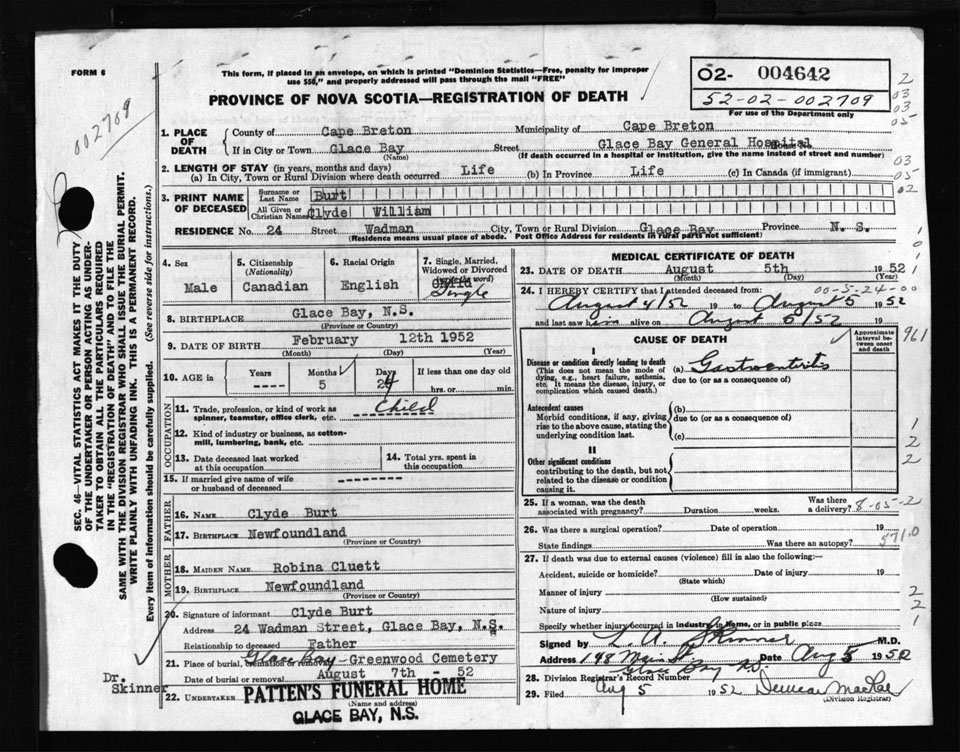 FORM 6
This form, if placed in an envelope, on which is printed "Dominion Statistics—Free, penalty for improper
use $50," and properly addressed will pass through the mail "FREE"
PROVINCE OF NOVA SCOTIA—REGISTRATION OF DEATH
02- 004642
52-02-002709
For use of the Department only
002709
2
03
03
05
1. PLACE OF DEATH
County of Cape Breton Municipality of Cape Breton
If in City or Town Glace Bay Street Glace Bay General Hospital
(Name) (If death occurred in a hospital or institution, give the name instead of street and number)
2. LENGTH OF STAY (in years, months and days)
(a) In City, Town or Rural Division where death occurred Life (b) In Province Life (c) In Canada (if immigrant)
03
05
02
3. PRINT NAME OF DECEASED
Surname or Last Name Burt
All Given or Christian Names Clyde William
RESIDENCE No. 24 Street Wadman City, Town or Rural Division Glace Bay Province N. S.
(Residence means usual place of abode. Post Office Address for residents in rural parts not sufficient)
4. Sex
Male
5. Citizenship
(Nationality)
Canadian
6. Racial Origin
English
7. Single, Married,
Widowed or Divorced
(write the word)
Child
Single
8. BIRTHPLACE Glace Bay, N.S.
(Province or Country)
9. DATE OF BIRTH February 12th 1952
(Month) (Day) (Year)
10. AGE in
Years ----
Months 5
Days 24
If less than one day old
hrs. or min.
OCCUPATION
11. Trade, profession, or kind of work as
spinner, teamster, office clerk, etc. Child
12. Kind of industry or business, as cotton-
mill, lumbering, bank, etc.
13. Date deceased last worked
at this occupation
14. Total yrs. spent in
this occupation
15. If married give name of wife
or husband of deceased ---------
FATHER
16. NAME Clyde Burt
17. BIRTHPLACE Newfoundland
(Province or Country)
MOTHER
18. MAIDEN NAME Robina Cluett
19. BIRTHPLACE Newfoundland
(Province or Country)
20. Signature of informant Clyde Burt
Address 24 Wadman Street, Glace Bay, N.S.
Relationship to deceased Father
21. Place of burial, cremation or removal Glace Bay—Greenwood Cemetery
Date of burial or removal August 7th - 52
22. UNDERTAKER PATTEN'S FUNERAL HOME
(Name and address)
GLACE BAY, N.S.
Dr.
Skinner
SEC. 46—VITAL STATISTICS ACT MAKES IT THE DUTY
OF THE UNDERTAKER OR PERSON ACTING AS UNDER-
TAKER TO OBTAIN ALL THE PARTICULARS REQUIRED
IN THE "REGISTRATION OF DEATH" AND TO FILE THE
SAME WITH THE DIVISION REGISTRAR WHO SHALL ISSUE THE BURIAL PERMIT.
WRITE PLAINLY WITH UNFADING INK. THIS IS A PERMANENT RECORD.
Every item of information should be carefully supplied. (See reverse side for instructions.)
MEDICAL CERTIFICATE OF DEATH
23. DATE OF DEATH August 5th 1952
(Month) (Day) (Year)
24. I HEREBY CERTIFY that I attended deceased from: 00-5-24-00
August 4/52 19 to August 5 1952
and last saw him alive on August 5/52 19
CAUSE OF DEATH
Approximate
interval be-
tween onset
and death
961
I
Disease or condition directly leading to death
(This does not mean the mode of
dying, e.g., heart failure, asthenia,
etc. It means the disease, injury, or
complication which caused death.)
(a) Gastroenteritis
due to (or as a consequence of)
Antecedent causes
Morbid conditions, if any, giving
rise to the above cause, stating the
underlying condition last.
(b)
due to (or as a consequence of)
(c)
II
Other significant conditions
contributing to the death, but not
related to the disease or condition
causing it.
1
2
2
25. If a woman, was the death
associated with pregnancy? Duration weeks. Was there
a delivery? 8-05-2
26. Was there a surgical operation? Date of operation 19
State findings Was there an autopsy? 571.0
27. If death was due to external causes (violence) fill in also the following:—
Accident, suicide or homicide? Date of injury 19
(State which)
Manner of injury
(How sustained)
Nature of injury
Specify whether injury occurred in industry, in home, or in public place
2
2
1
Signed by L. A. Skinner M.D.
Address 198 Main St Date Aug 5 1952
Glace Bay
28. Division Registrar's Record Number
29. Filed Aug 5 1952
(Division Registrar)